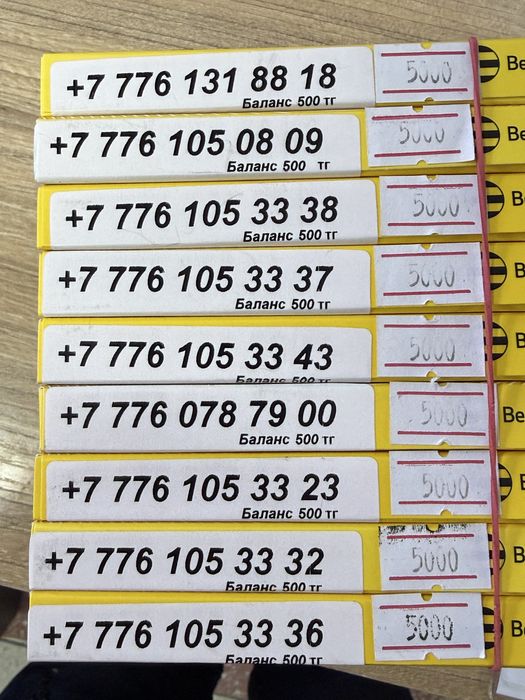 +7 776 131 88 18 5000 Be
Баланс 500 тг
+7 776 105 08 09 5000 Be
Баланс 500 тг
+7 776 105 33 38 5000 B
Баланс 500 тг
+7 776 105 33 37 5000 B
Баланс 500 тг
+7 776 105 33 43 5000 B
Баланс 500 тг
+7 776 078 79 00 5000 Be
Баланс 500 тг
+7 776 105 33 23 5000 B
Баланс 500 тг
+7 776 105 33 32 5000 B
Баланс 500 тг
+7 776 105 33 36 5000 Be
Баланс 500 тг